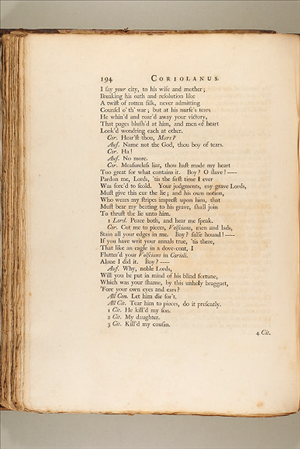 194 CORIOLANUS.
I say your city, to his wife and mother;
Breaking his oath and resolution like
A twist of rotten silk, never admitting
Counsel o' th' war; but at his nurse's tears
He whin'd and roar'd away your victory,
That pages blush'd at him, and men of heart
Look'd wondring each at other.
Cor. Hear'st thou, Mars?
Auf. Name not the God, thou boy of tears.
Cor. Ha!
Auf. No more.
Cor. Measureless liar, thou hast made my heart
Too great for what contains it. Boy? O slave! —
Pardon me, Lords, 'tis the first time I ever
Was forc'd to scold. Your judgments, my grave Lords,
Must give this cur the lie; and his own notion,
Who wears my stripes imprest upon him, that
Must bear my beating to his grave, shall join
To thrust the lie unto him.
1 Lord. Peace both, and hear me speak.
Cor. Cut me to pieces, Volscians, men and lads,
Stain all your edges in me. Boy? false hound! —
If you have writ your annals true, 'tis there,
That like an eagle in a dove-coat, I
Flutter'd your Volscians in Corioli.
Alone I did it. Boy? —
Auf. Why, noble Lords,
Will you be put in mind of his blind fortune,
Which was your shame, by this unholy braggart,
'Fore your own eyes and ears?
All Con. Let him die for't.
All Cit. Tear him to pieces, do it presently.
1 Cit. He kill'd my son.
2 Cit. My daughter.
3 Cit. Kill'd my cousin.
4 Cit.